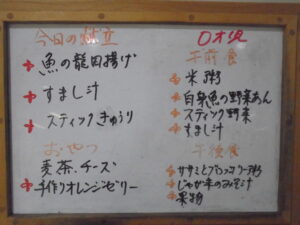 今日の献立
魚の竜田揚げ
すまし汁
スティックきゅうり
おやつ
麦茶・チーズ
手作りオレンジゼリー
0才児
午前食
米粥
白身魚の野菜あん
スティック野菜
すまし汁
午後食
ササミとブロッコリー粥
じゃが芋のみそ汁
果物